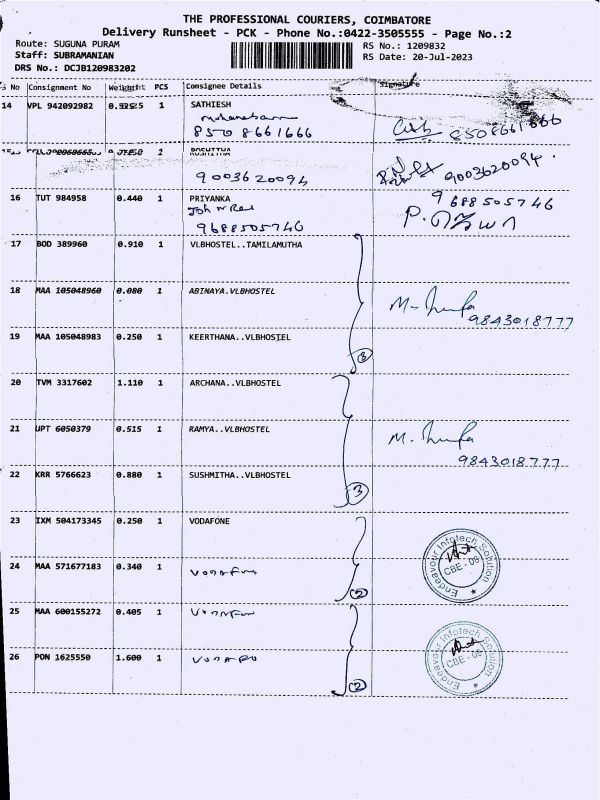 THE PROFESSIONAL COURIERS, COIMBATORE
Delivery Runsheet - PCK - Phone No.:0422-3505555 - Page No.:2
Route: SUGUNA PURAM
RS No.: 1209832
Staff: SUBRAMANIAN
RS Date: 20-Jul-2023
DRS No.: DCJB120983202
S No Consignment No Weight PCS Consignee Details Signature
14 VPL 942092982 1 SATHIESH
8508661666 8508661666
1 ROSHITHA
9003620094 9003620094
16 TUT 984958 0.440 1 PRIYANKA 9688505746
9688505746
17 BOD 389960 0.910 1 VLBHOSTEL..TAMILAMUTHA
18 MAA 105048960 0.080 1 ABINAYA.VLBHOSTEL
9843018777
19 MAA 105048983 0.250 1 KEERTHANA..VLBHOSTEL
20 TVM 3317602 1.110 1 ARCHANA..VLBHOSTEL
21 UPT 6050379 0.515 1 RAMYA..VLBHOSTEL
9843018777
22 KRR 5766623 0.880 1 SUSHMITHA..VLBHOSTEL
3
23 IXM 504173345 0.250 1 VODAFONE
24 MAA 571677183 0.340 1
2
Endeavour Infotech Solution
CBE - 08
25 MAA 600155272 0.405 1
26 PON 1625550 1.600 1
2
Endeavour Infotech Solution
CBE - 08